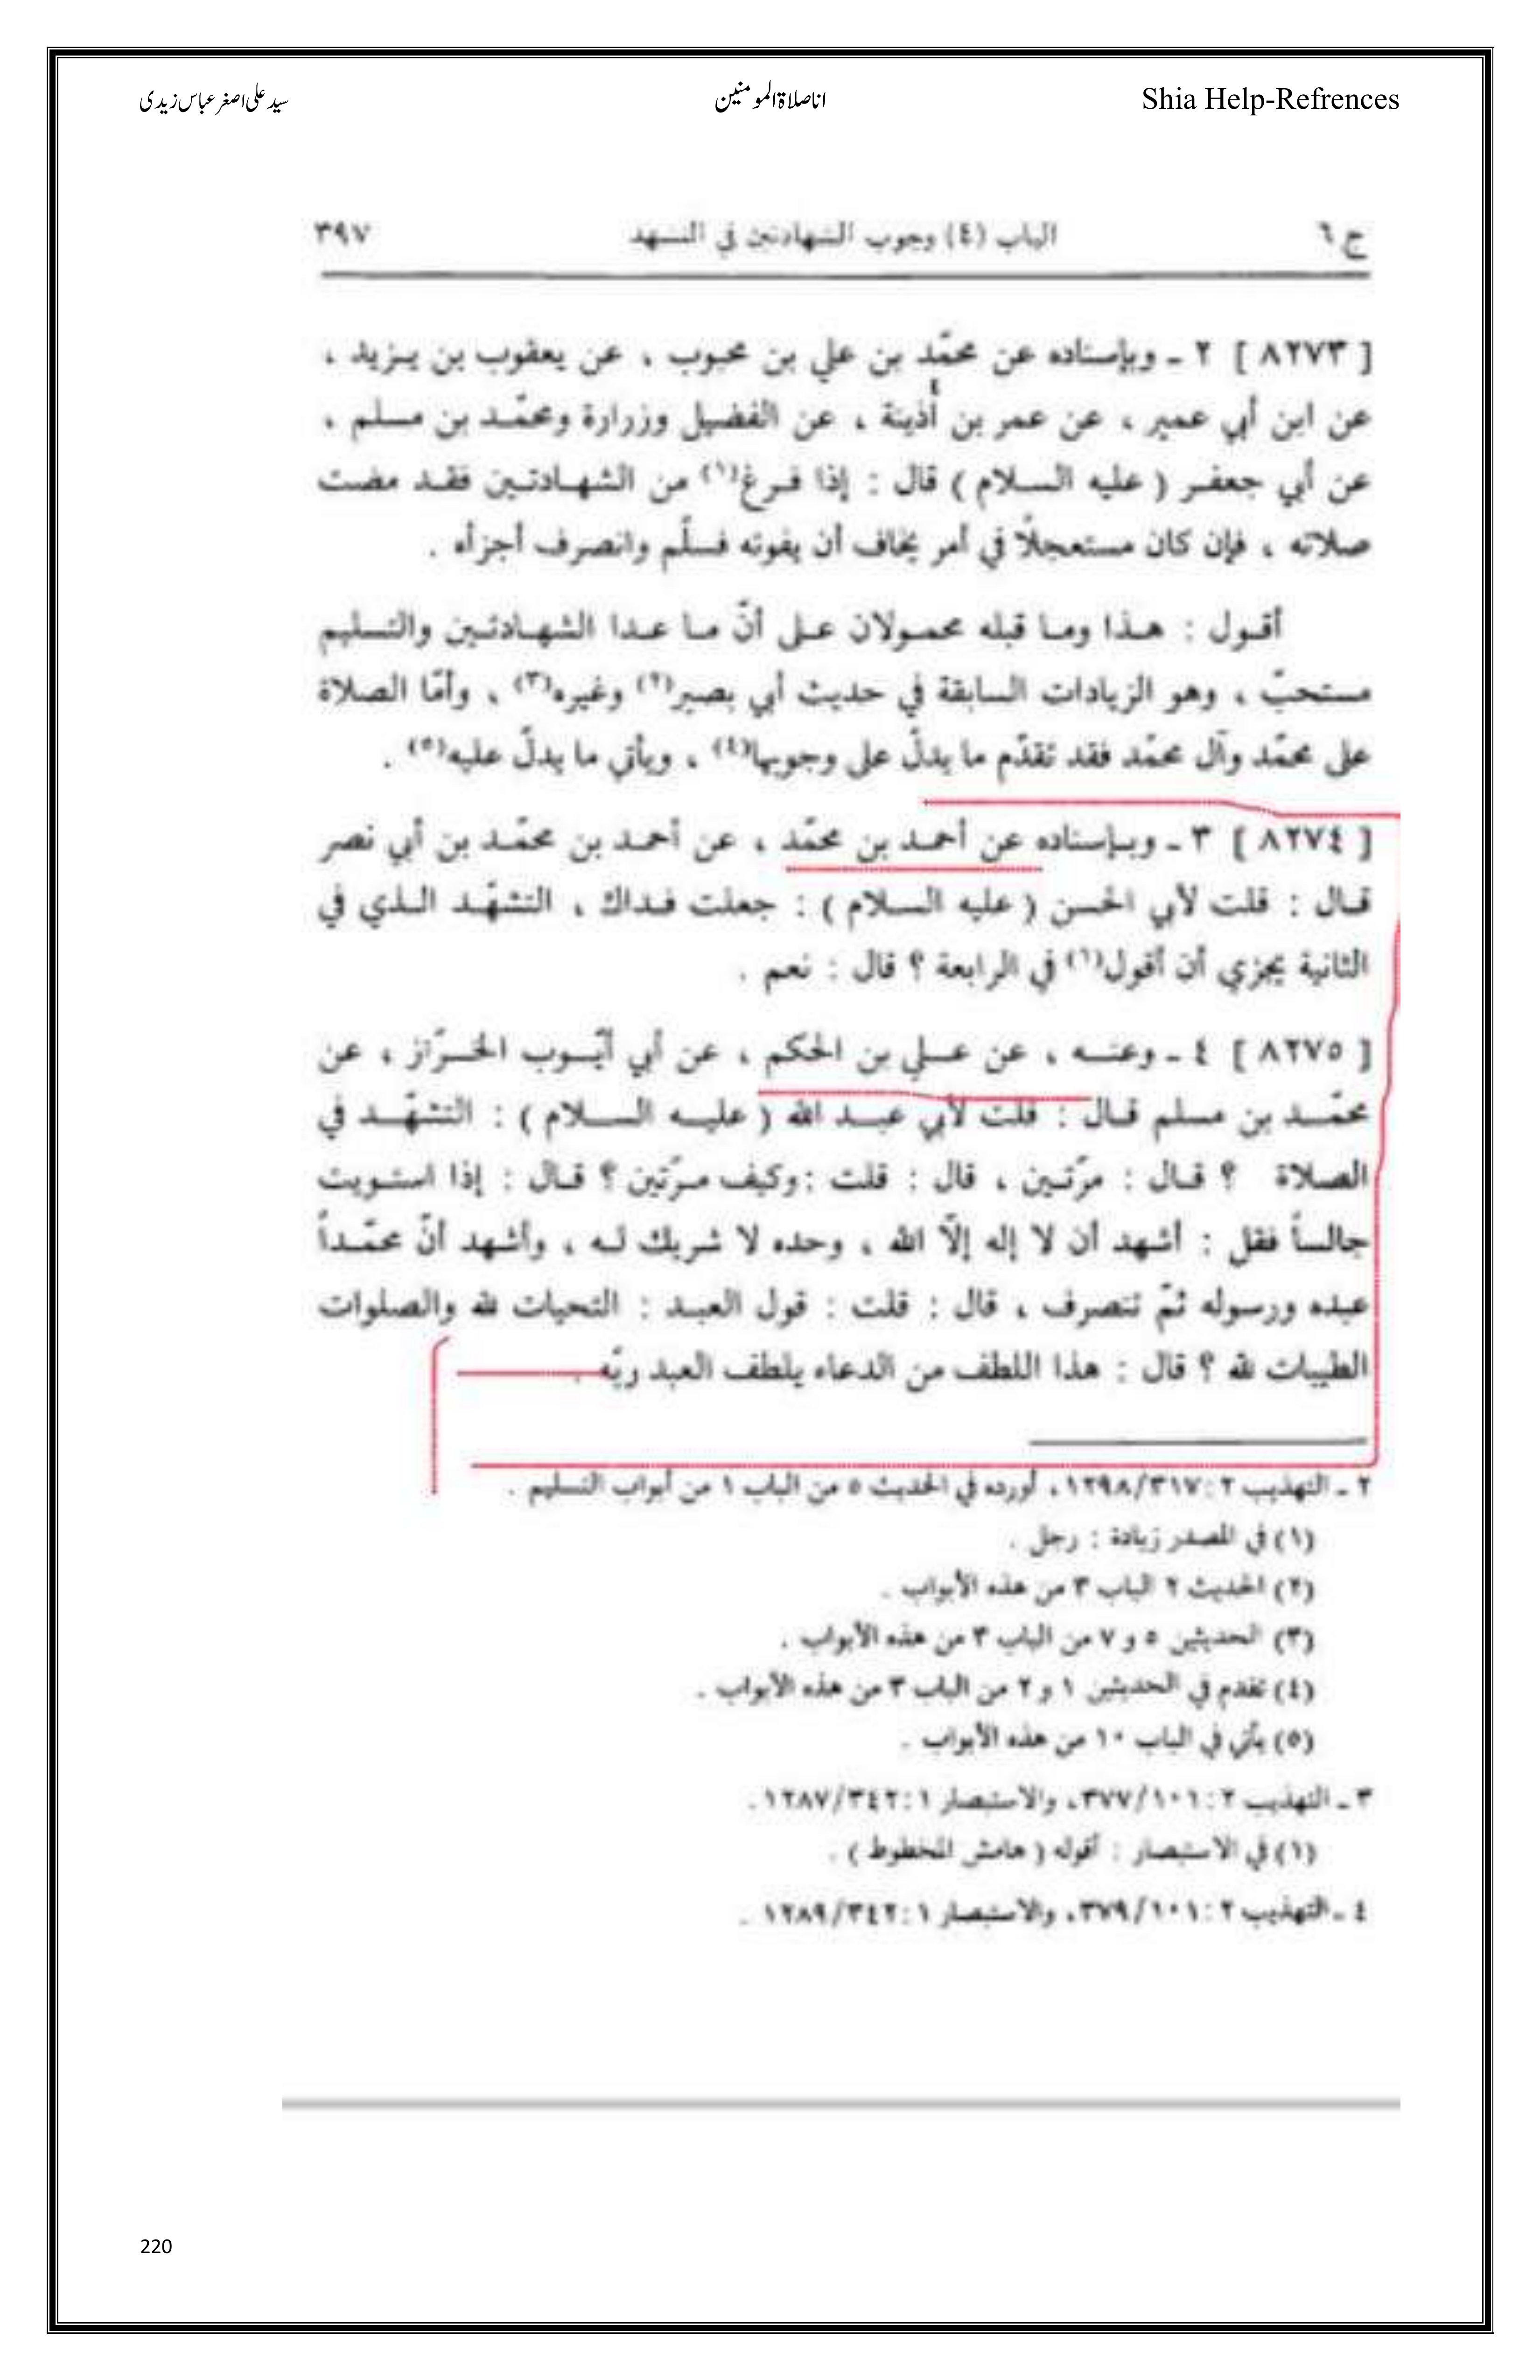 Shia Help-Refrences
اناصلاۃالمومنین
سید علی اصغر عباس زیدی
ج ٦ الباب (٤) وجوب الشهادتين في التشهد ٣٩٧
[ ٨٢٧٣ ] ٢ ـ وبإسناده عن محمّد بن علي بن محبوب ، عن يعقوب بن يـزيد ،
عن ابن أبي عمير ، عن عمر بن أُذينة ، عن الفضيل وزرارة ومحمّـد بن مسلم ،
عن أبي جعفـر ( عليه السـلام ) قال : إذا فـرغ(١) من الشهـادتـين فقـد مضت
صلاته ، فإن كان مستعجلاً في أمر يخاف أن يفوته فسلّم وانصرف أجزأه .
أقـول : هـذا ومـا قبله محمـولان عـلى أنّ مـا عـدا الشهـادتـين والتسليم
مستحبّ ، وهو الزيادات السابقة في حديث أبي بصير(٢) وغيره(٣) ، وأمّا الصلاة
على محمّد وآل محمّد فقد تقدّم ما يدلّ على وجوبها(٤) ، ويأتي ما يدلّ عليه(٥) .
[ ٨٢٧٤ ] ٣ ـ وبـإسناده عن أحمـد بن محمّد ، عن أحمـد بن محمّـد بن أبي نصر
قـال : قلت لأبي الحسن ( عليه السـلام ) : جعلت فـداك ، التشهّـد الـذي في
الثانية يجزي أن أقول(١) في الرابعة ؟ قال : نعم .
[ ٨٢٧٥ ] ٤ ـ وعنـه ، عن عـلي بن الحكم ، عن أبي أيّـوب الخـزّاز ، عن
محمّـد بن مسلم قـال : قلت لأبي عبـد الله ( عليـه السـلام ) : التشهّـد في
الصلاة ؟ قـال : مرّتـين ، قال : قلت : وكيف مـرّتين ؟ قـال : إذا استـويت
جالساً فقل : أشهد أن لا إله إلّا الله ، وحده لا شريك لـه ، وأشهد أنّ محمّـداً
عبده ورسوله ثمّ تنصرف ، قال : قلت : قول العبـد : التحيات لله والصلوات
الطيبات لله ؟ قال : هذا اللطف من الدعاء يلطف العبد ربّه .
٢ ـ التهذيب ٢ : ٣١٧/١٢٩٨ ، أورده في الحديث ٥ من الباب ١ من أبواب التسليم .
(١) في المصدر زيادة : رجل .
(٢) الحديث ٢ الباب ٣ من هذه الأبواب .
(٣) الحديثين ٥ و ٧ من الباب ٣ من هذه الأبواب .
(٤) تقدم في الحديثين ١ و ٢ من الباب ٣ من هذه الأبواب .
(٥) يأتي في الباب ١٠ من هذه الأبواب .
٣ ـ التهذيب ٢ : ١٠١/٣٧٧، والاستبصار ١ : ٣٤٢/١٢٨٧ .
(١) في الاستبصار : أقوله ( هامش المخطوط ) .
٤ ـ التهذيب ٢ : ١٠١/٣٧٩، والاستبصار ١ : ٣٤٢/١٢٨٩ .
220